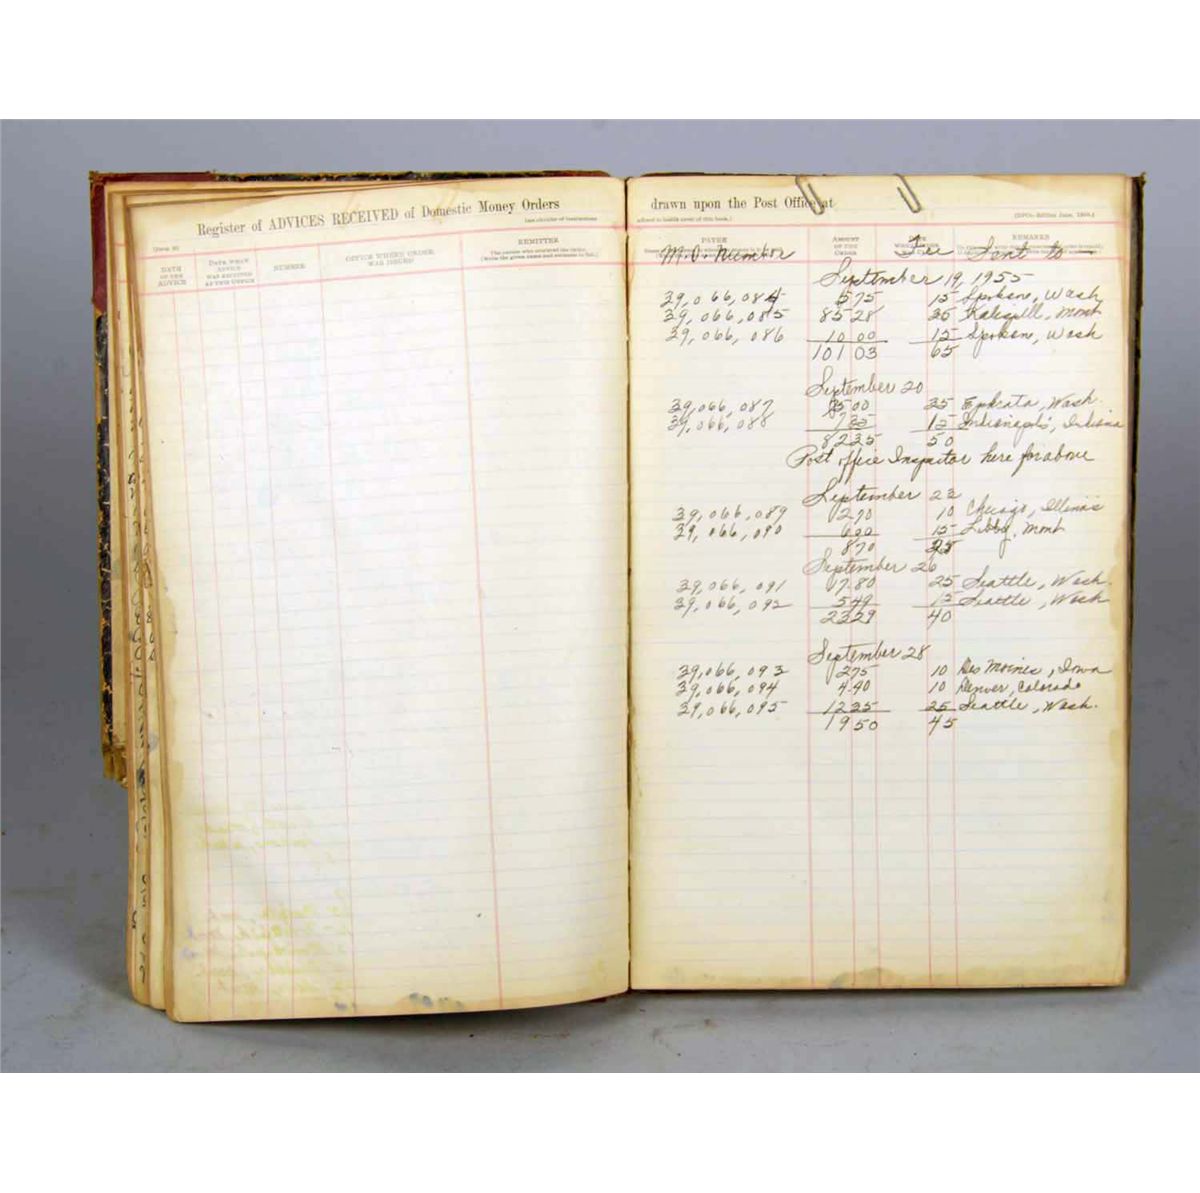 Register of ADVICES RECEIVED of Domestic Money Orders
drawn upon the Post Office at
DATE OF THE ADVICE
DATE WHEN ADVICE WAS RECEIVED AT THIS OFFICE
NUMBER
OFFICE WHERE ORDER WAS ISSUED
REMITTER
PAYEE
AMOUNT OF THE ORDER
REMARKS
M.O. Number Fee Sent to
September 19, 1955
39,066,084 575 15 Spokane, Wash
39,066,085 8528 35 Kalispell, Mont
39,066,086 10 00 15 Spokane, Wash
101 03 65
September 20
39,066,087 7500 35 Ephrata, Wash.
39,066,088 735 15 Indianapolis, Indiana
8235 50
Post office Inspector here for above
September 22
39,066,089 270 10 Chicago, Illinois
39,066,090 600 15 Libby, Mont
870 25
September 26
39,066,091 17.80 25 Seattle, Wash.
39,066,092 549 15 Seattle, Wash
2329 40
September 28
39,066,093 275 10 Des Moines, Iowa
39,066,094 4.40 10 Denver, Colorado
39,066,095 1235 25 Seattle, Wash.
19 50 45